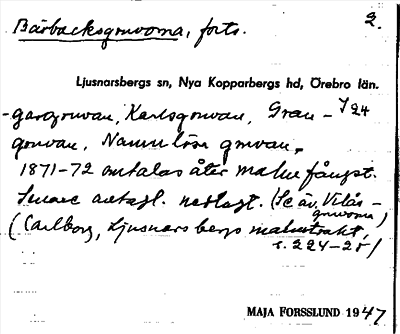 Bärbacksgruvorna, forts. 2.
Ljusnarsbergs sn, Nya Kopparbergs hd, Örebro län.
-gargruvan, Karlsgruvan, Gran- I 24
gruvan, Namnlösa gruvan.
1871-72 omtalas åter malmfångst.
Senare antagl. nedlagt. (Se äv. Vilås-
gruvorna)
(Carlborg, Ljusnarsbergs malmtrakt,
s. 224-25)
MAJA FORSSLUND 1947